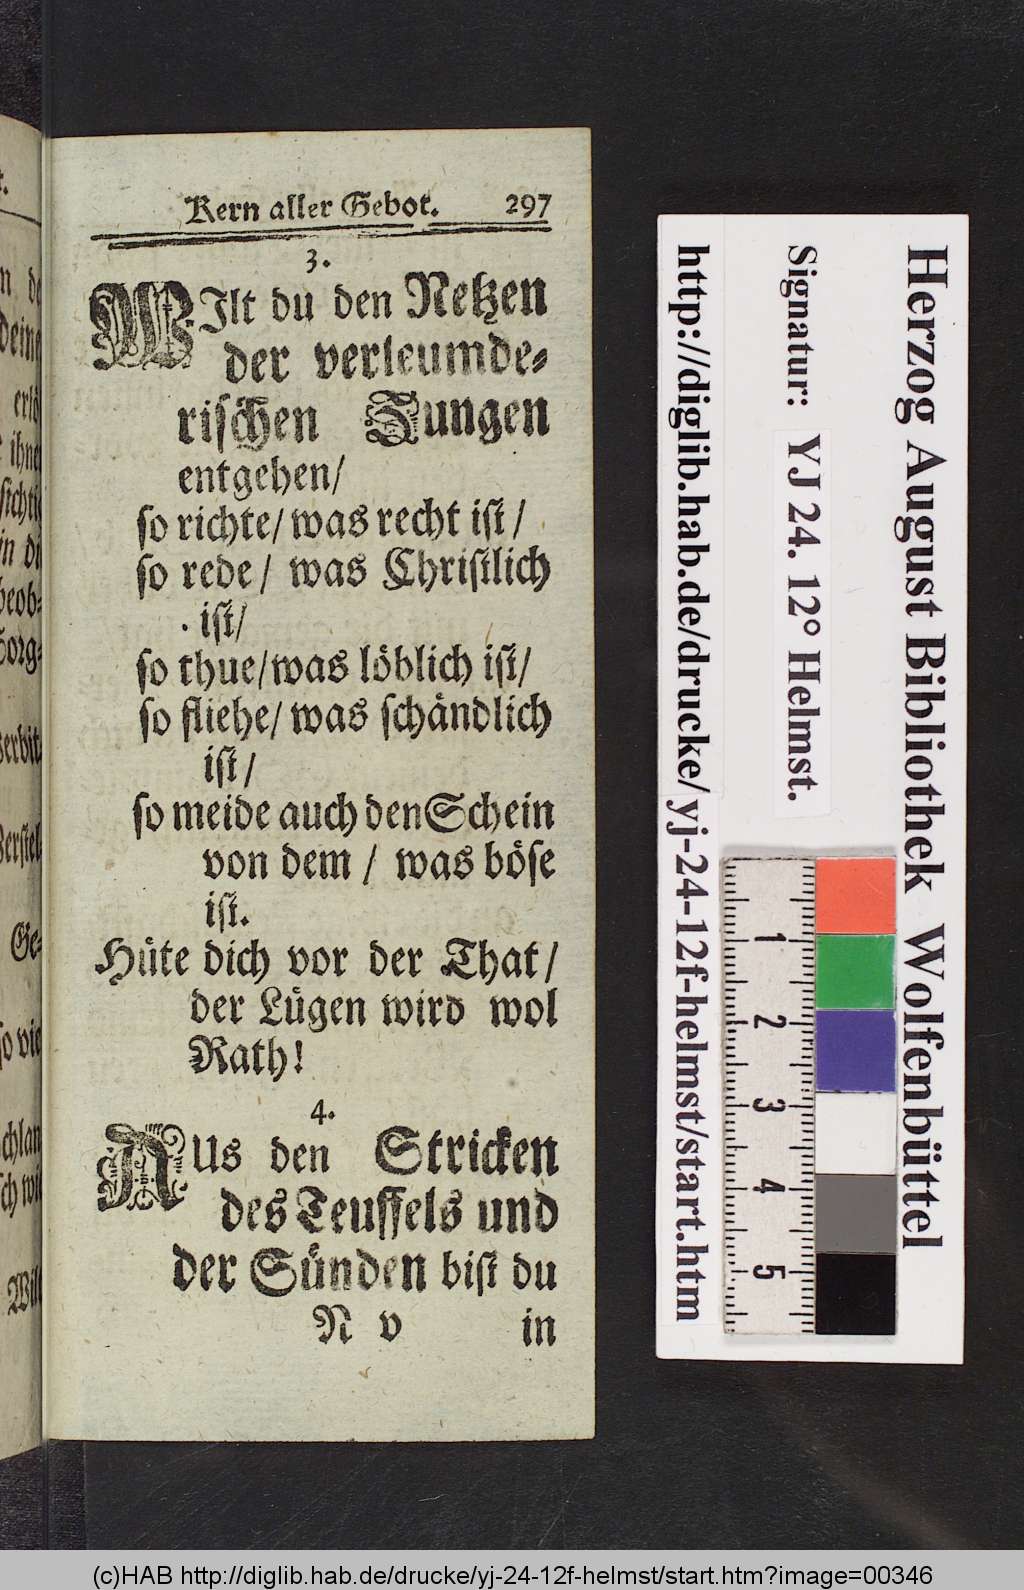 Kern aller Gebot. 297
3.
WIlt du den Netzen
der verleumde-
rischen Zungen
entgehen/
so richte/ was recht ist/
so rede/ was Christlich
ist/
so thue/ was löblich ist/
so fliehe/ was schändlich
ist/
so meide auch den Schein
von dem / was böse
ist.
Hüte dich vor der That/
der Lügen wird wol
Rath!
4.
AUs den Stricken
des Teuffels und
der Sünden bist du
N v in
Herzog August Bibliothek Wolfenbüttel
Signatur: YJ 24. 12° Helmst.
http://diglib.hab.de/drucke/yj-24-12f-helmst/start.htm
1
2
3
4
5
(c)HAB http://diglib.hab.de/drucke/yj-24-12f-helmst/start.htm?image=00346